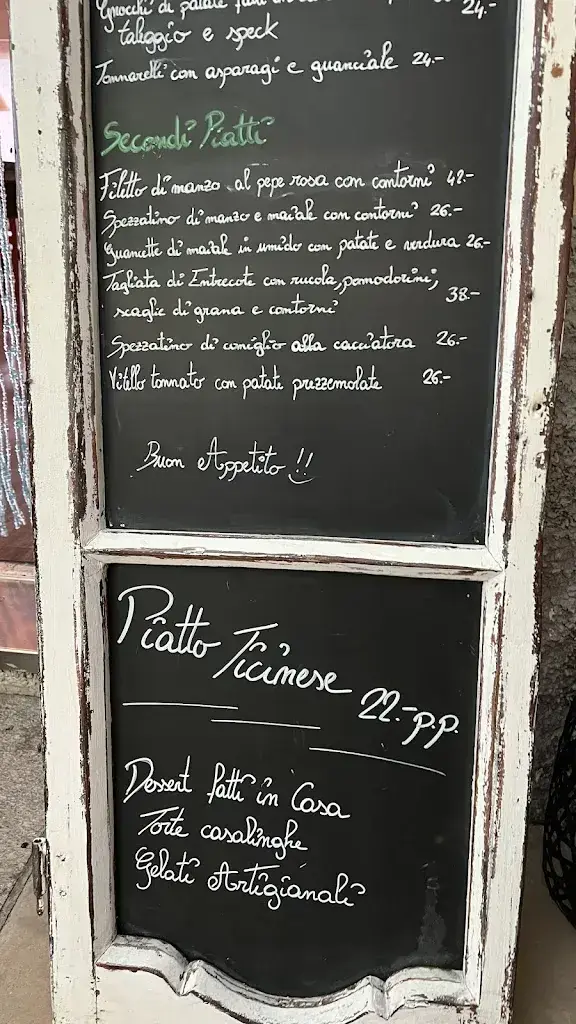 Gnocchi di patate fatti in 24.-
taleggio e speck
Tonnarelli con asparagi e guanciale 24.-
Secondi Piatti
Filetto di manzo al pepe rosa con contorni 42.-
Spezzatino di manzo e maiale con contorni 26.-
Guancette di maiale in umido con patate e verdura 26.-
Tagliata di Entrecote con rucola, pomodorini,
scaglie di grana e contorni 38.-
Spezzatino di coniglio alla cacciatora 26.-
Vitello tonnato con patate prezzemolate 26.-
Buon Appetito !!
Piatto Ticinese 22.- p.p.
Dessert fatti in Casa
Torte casalinghe
Gelati Artigianali